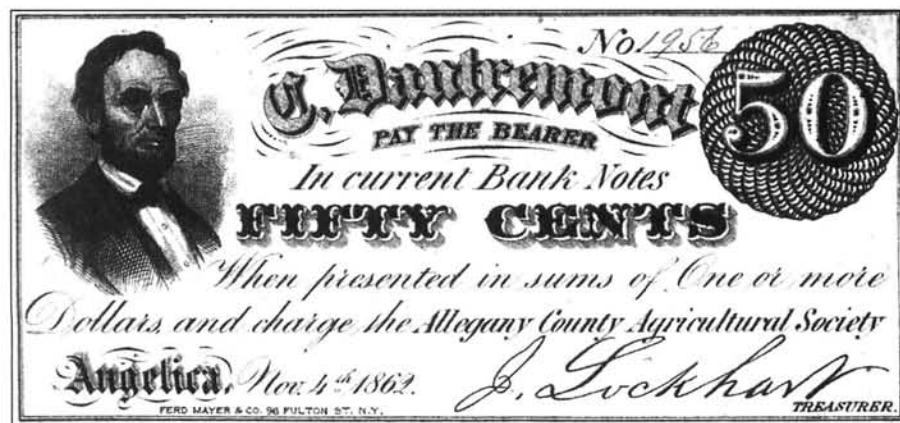 No 1956
C. Dautremont
PAY THE BEARER
50
In current Bank Notes
FIFTY CENTS
When presented in sums of One or more
Dollars, and charge the Allegany County Agricultural Society
Angelica, Nov. 4th 1862.
J. Lockhart
FERD MAYER & CO. 96 FULTON ST. N.Y.
TREASURER.